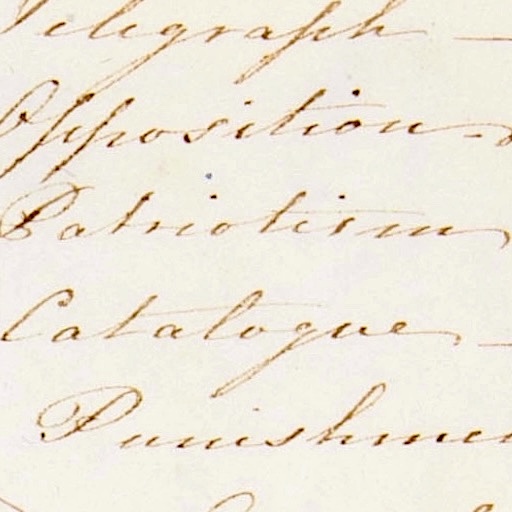 Telegraph —
Opposition -
Patriotism
Catalogue —
Punishmen